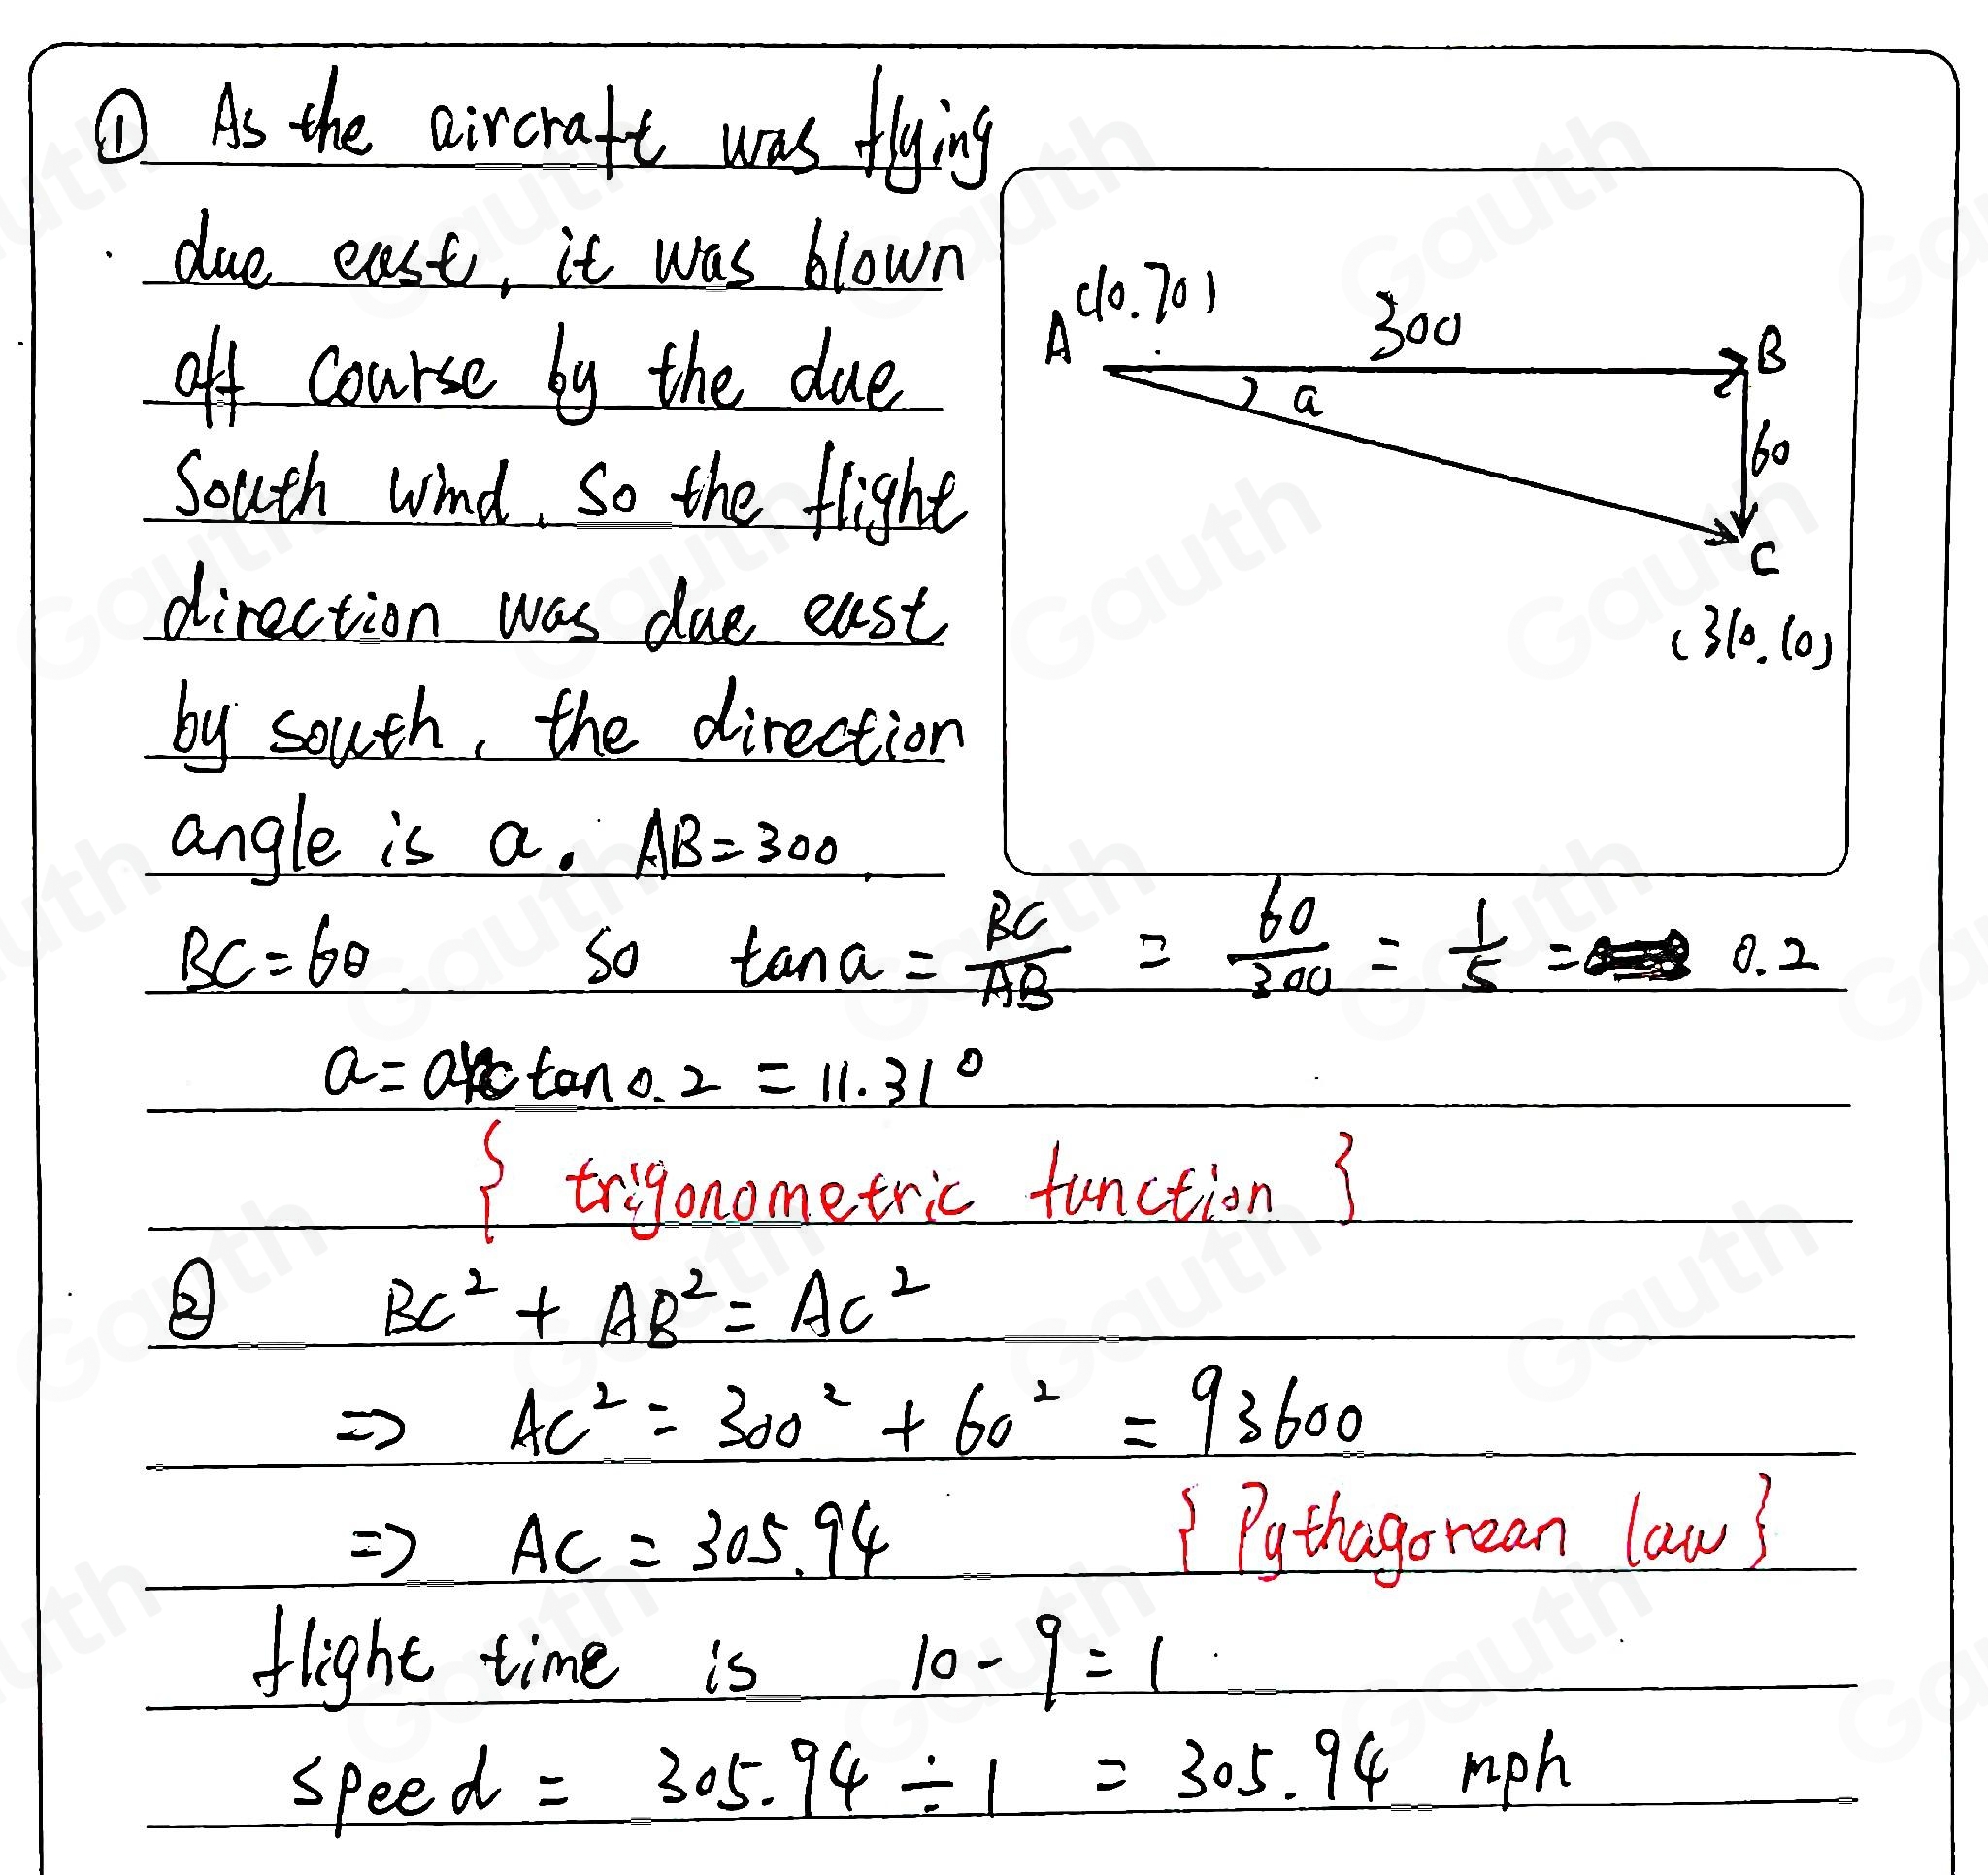 ① As the aircraft was flying
due east, it was blown
off course by the due
South wind. So the flight
direction was due east
by south, the direction
angle is a. AB=300
A (10.70)
300
B
a
60
C
(310.10)
BC=60 so tan a = BC/AB = 60/300 = 1/5 = 0.2
a = arctan 0.2 = 11.31°
{ trigonometric function }
② BC² + AB² = AC²
=> AC² = 300² + 60² = 93600
=> AC = 305.94 { Pythagorean law }
flight time is 10 - 9 = 1
speed = 305.94 ÷ 1 = 305.94 mph
Gauth